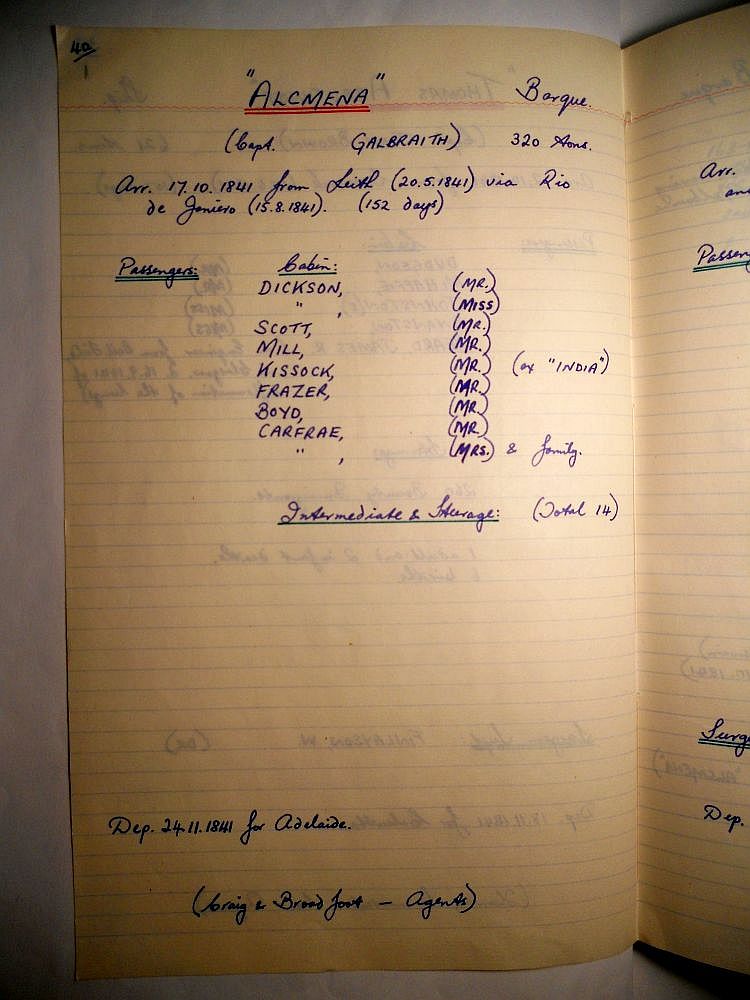 40
"ALCMENA" Barque.
(Capt. GALBRAITH) 320 tons.
Arr. 17.10.1841 from Leith (20.5.1841) via Rio
de Janiero (15.8.1841). (152 days)
Passengers: Cabin:
DICKSON, (MR.)
" , (MISS)
SCOTT, (MR.)
MILL, (MR.)
KISSOCK, (MR.) (ex "INDIA")
FRAZER, (MR.)
BOYD, (MR.)
CARFRAE, (MR.)
" , (MRS.) & family.
Intermediate & Steerage: (Total 14)
Dep. 24.11.1841 for Adelaide.
(Craig & Broadfoot — Agents)
Arr.
Dep.